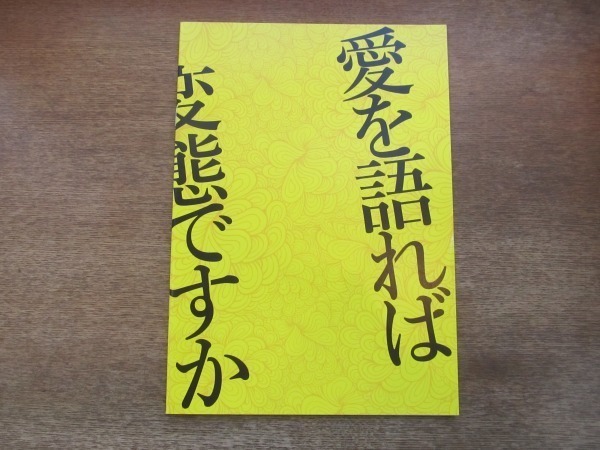 愛を語れば
変態ですか